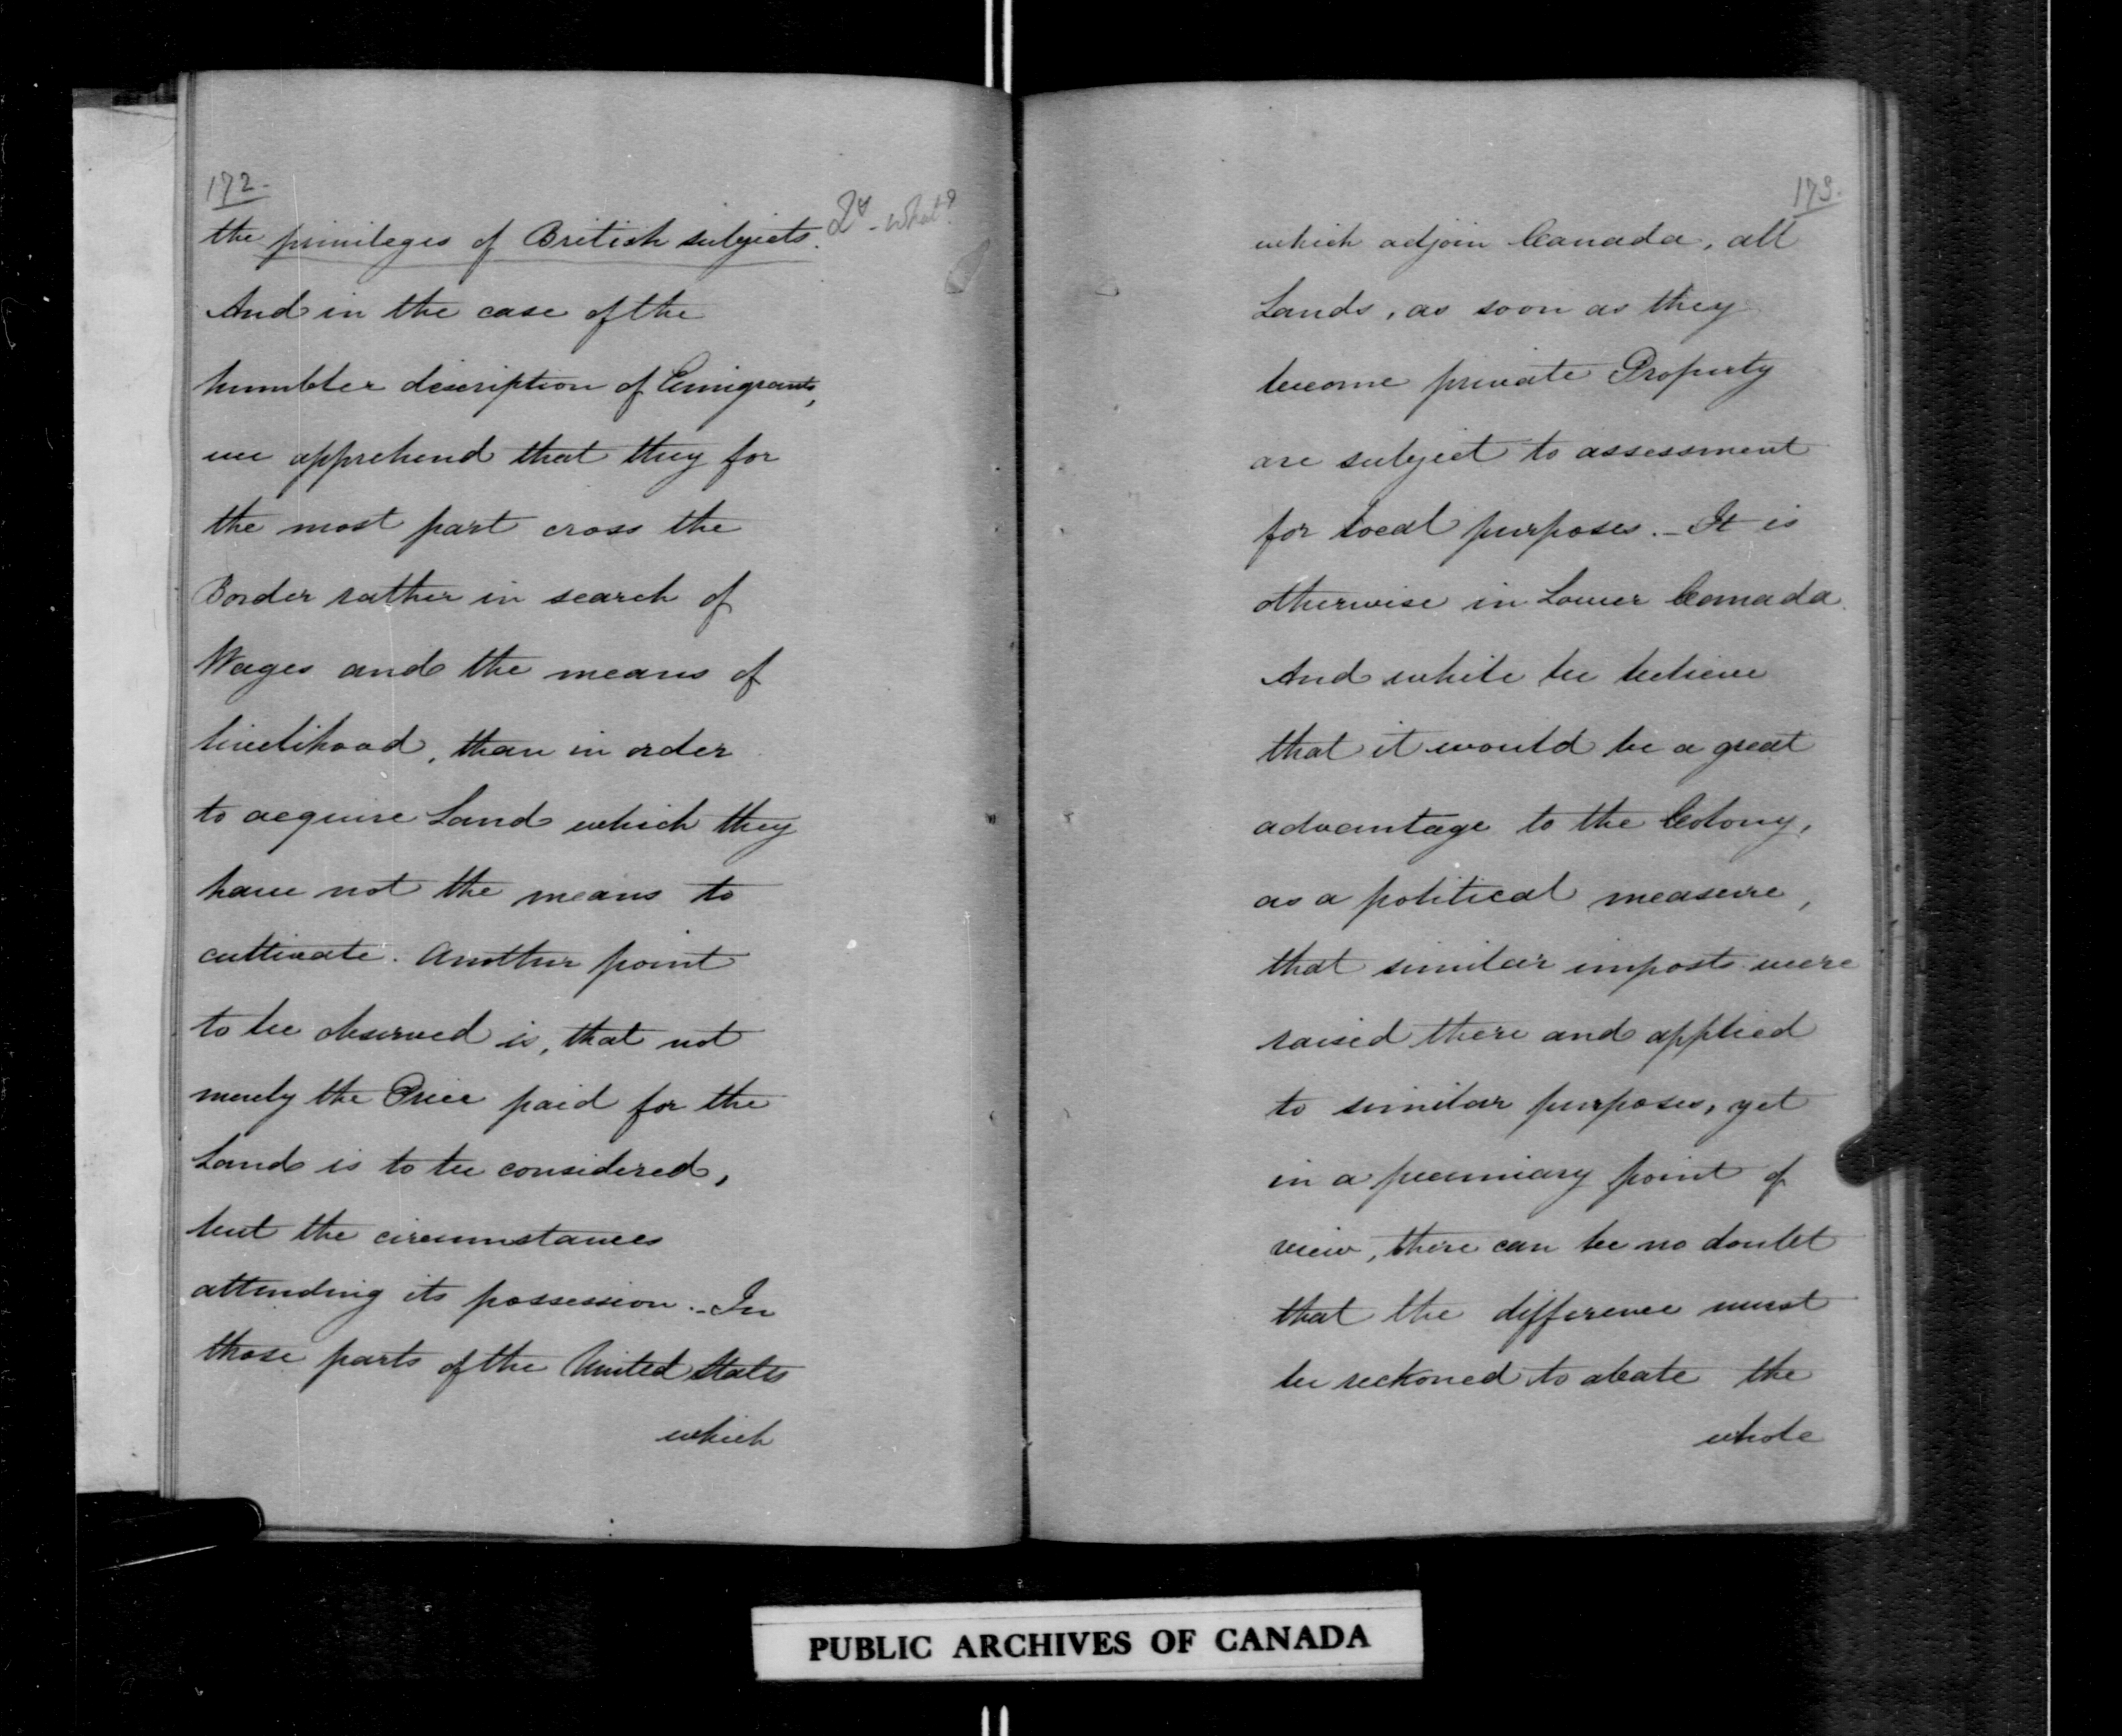 172.
the privileges of British subjects. - what?
And in the case of the
humbler description of Emigrants,
we apprehend that they for
the most part cross the
Border rather in search of
Wages and the means of
livelihood, than in order
to acquire Land which they
have not the means to
cultivate. Another point
to be observed is, that not
merely the Price paid for the
Land is to be considered,
but the circumstances
attending its possession. - In
those parts of the United States
which
173.
which adjoin Canada, all
Lands, as soon as they
become private Property
are subject to assessment
for local purposes. - It is
otherwise in Lower Canada.
And while we believe
that it would be a great
advantage to the Colony,
as a political measure,
that similar imposts were
raised there and applied
to similar purposes, yet
in a pecuniary point of
view, there can be no doubt
that the difference must
be reckoned to abate the
whole
PUBLIC ARCHIVES OF CANADA